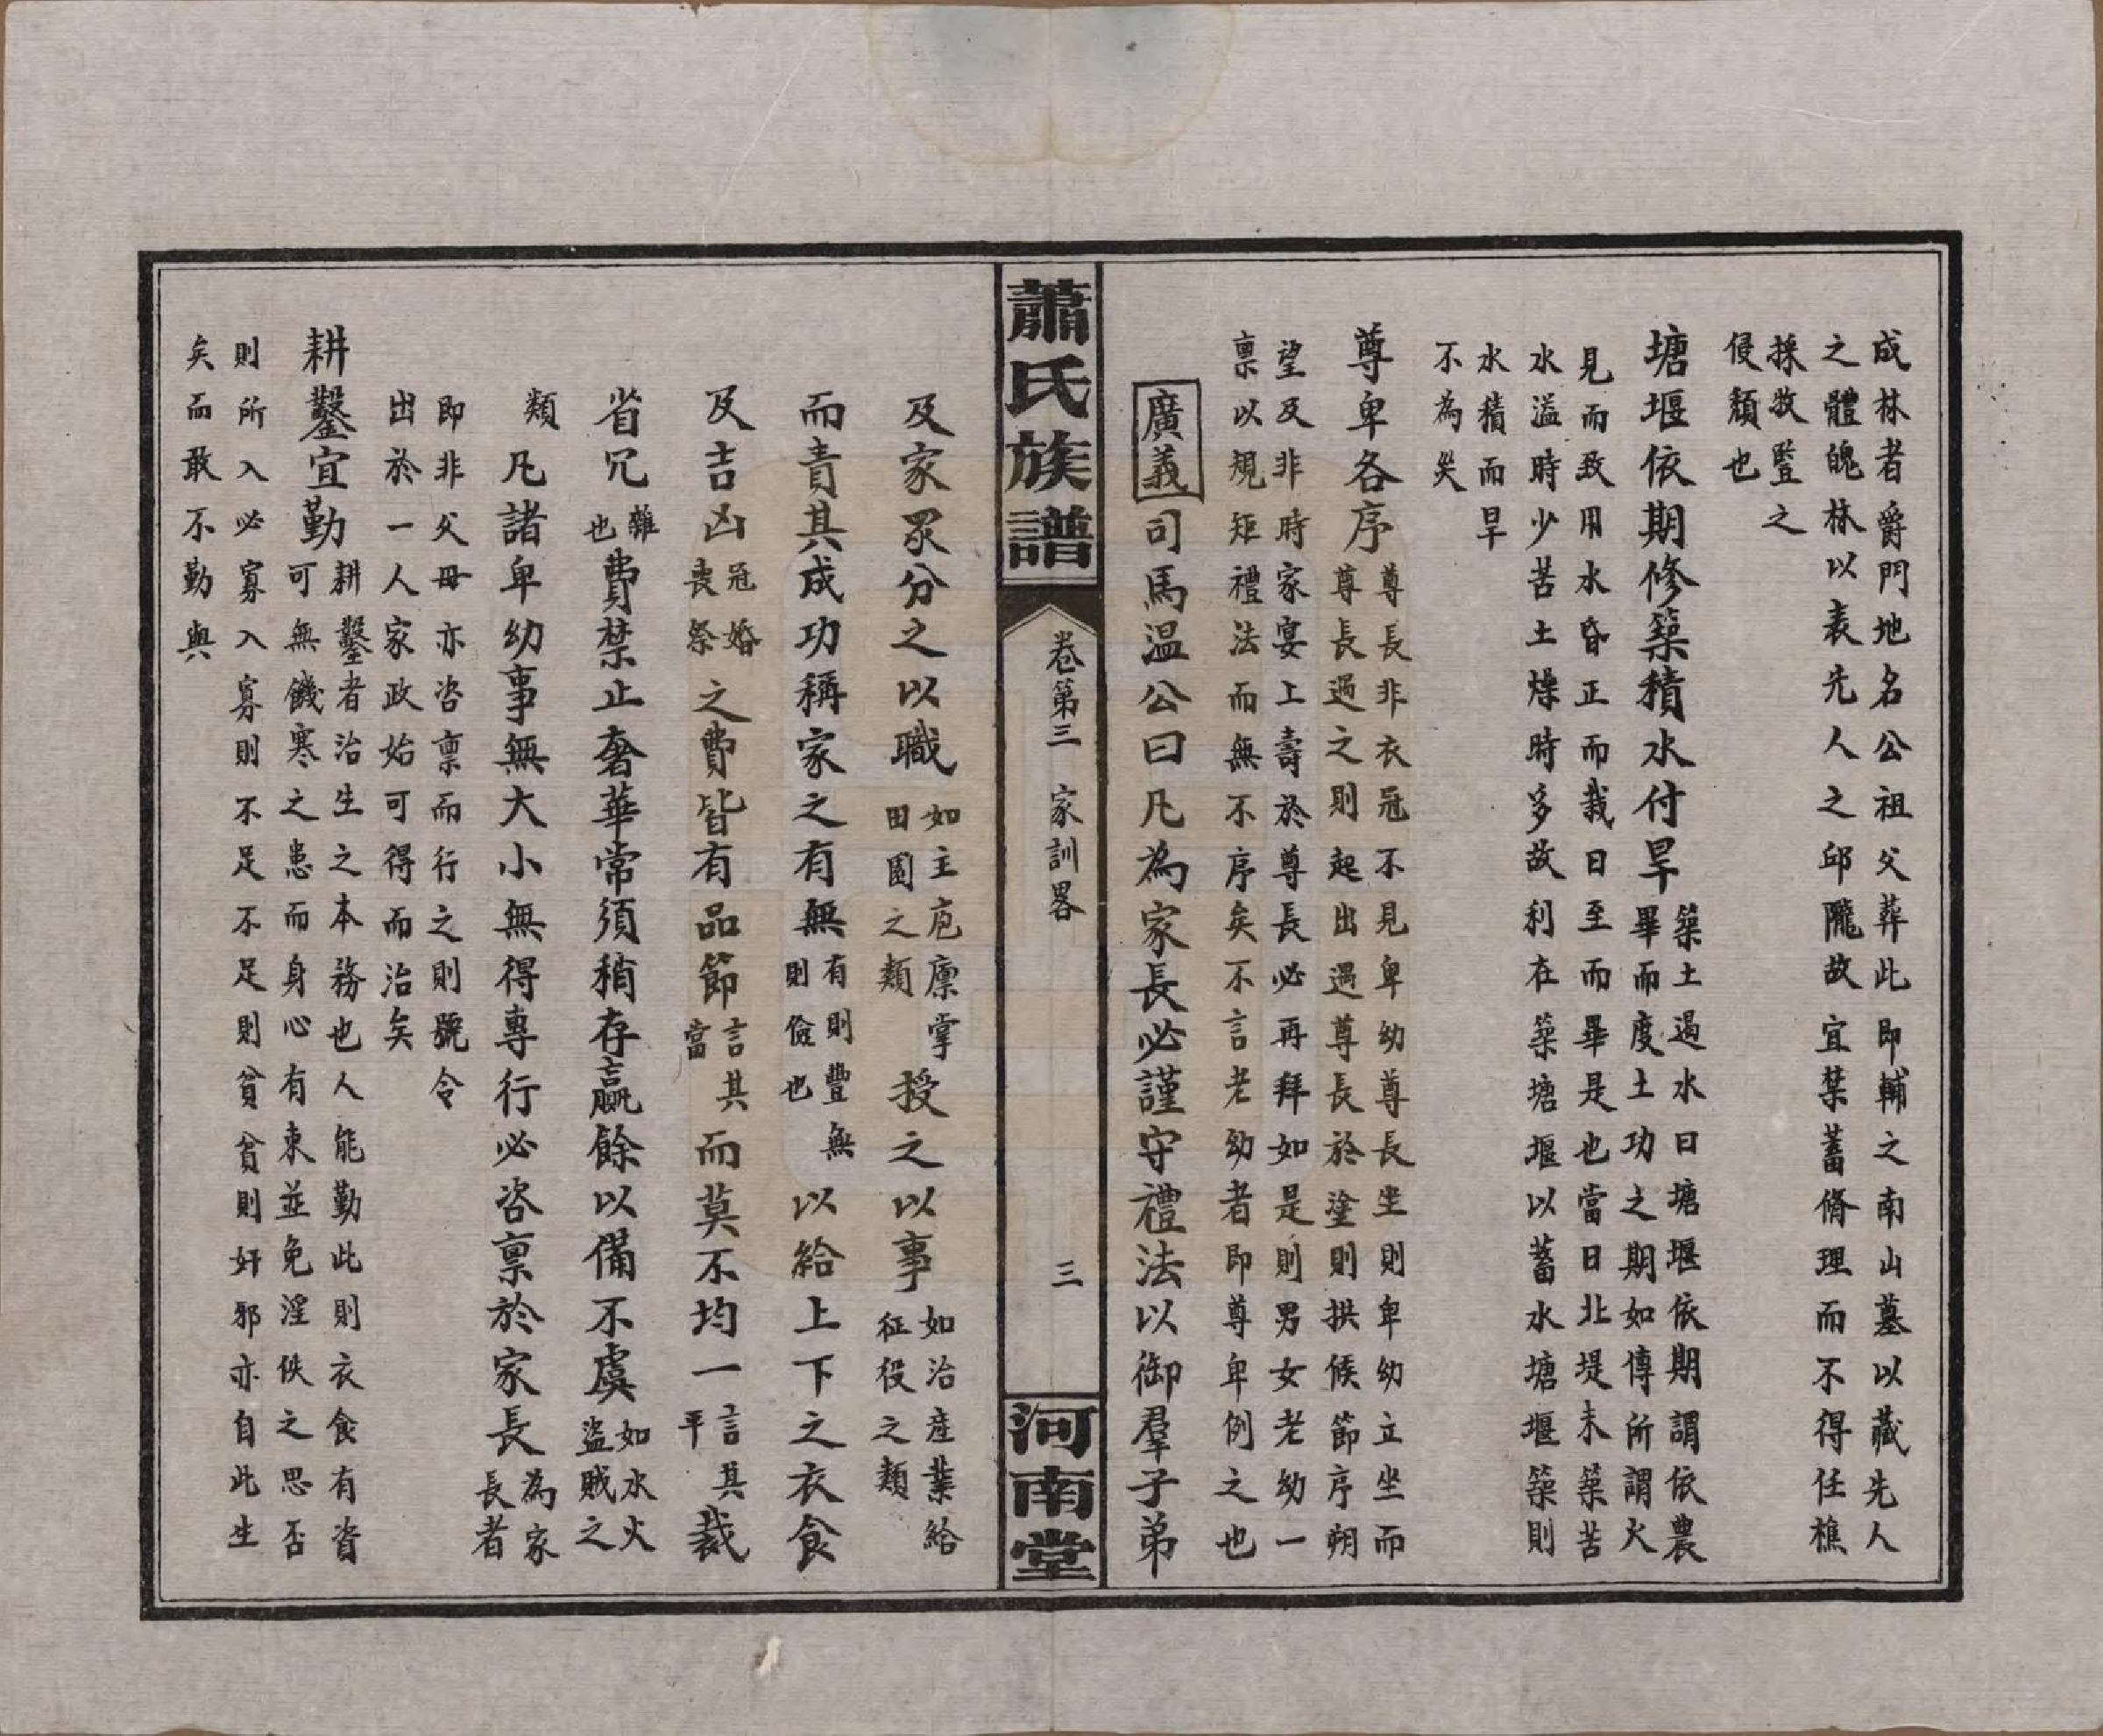 成林者爵門地名公祖父葬此即輔之南山墓以藏先人
之體魄林以表先人之邱隴故宜禁蓄脩理而不得任樵
採牧豎之
侵頹也
塘堰依期修築積水付旱
築土過水曰塘堰依期謂依農
畢而度土功之期如傳所謂火
見而致用水昏正而栽日至而畢是也當日北堤未築苦
水溢時少苦土燥時多故利在築塘堰以蓄水塘堰築則
水積而旱
不為災
尊卑各序
尊長非衣冠不見卑幼尊長坐則卑幼立坐而
尊長過之則起出遇尊長於塗則拱候節序朔
望及非時家宴上壽於尊長必再拜如是則男女老幼一
禀以規矩禮法而無不序矣不言老幼者即尊卑例之也
廣義 司馬温公曰凡為家長必謹守禮法以御羣子弟
蕭氏族譜 卷第三 家訓畧 三 河南堂
及家眾分之以職
如主庖廩掌
田園之類
授之以事
如治産業給
征役之類
而責其成功稱家之有無
有則豐無
則儉也
以給上下之衣食
及吉凶
冠婚
喪祭
之費皆有品節
言其
當
而莫不均一
言其
平
裁
省冗
雜
也
費禁止奢華常須稍存贏餘以備不虞
如水火
盜賊之
類
凡諸卑幼事無大小無得專行必咨禀於家長
為家
長者
即非父母亦咨禀而行之則號令
出於一人家政始可得而治矣
耕鑿宜勤
耕鑿者治生之本務也人能勤此則衣食有資
可無饑寒之患而身心有束並免淫佚之思否
則所入必寡入寡則不足不足則貧貧則奸邪亦自此生
矣而敢不勤與